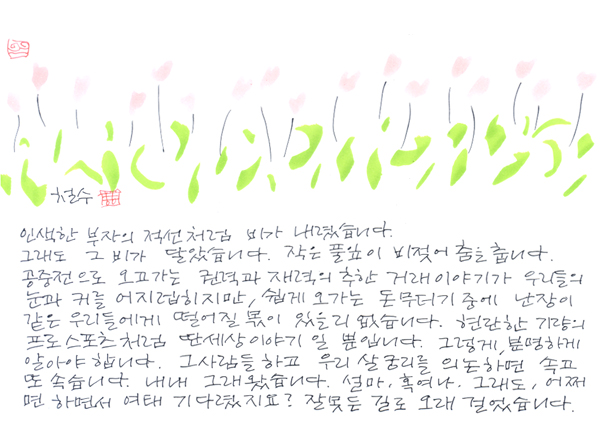 철수
인색한 부자의 적선처럼 비가 내렸습니다.
그래도 그 비가 달았습니다. 작은 풀잎이 비젖어 춤춥니다.
공중전으로 오고가는 권력과 재력의 추한 거래이야기가 우리들의
눈과 귀를 어지럽히지만, 쉽게 오가는 돈무더기 중에 난장이
같은 우리들에게 떨어질 몫이 있을리 없습니다. 현란한 기량의
프로스포츠처럼 딴세상이야기 일 뿐입니다. 그렇게, 분명하게
알아야 합니다. 그사람들하고 우리 살궁리를 의논하면 속고
또 속습니다. 내내 그래왔습니다. 설마, 혹여나. 그래도, 어쩌
면 하면서 여태 기다렸지요? 잘못든 길로 오래 걸었습니다.